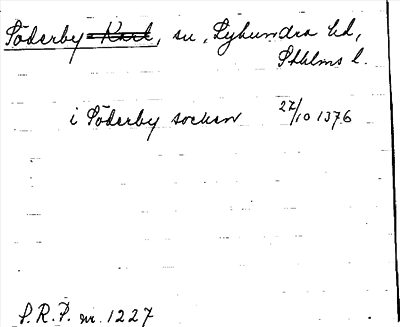 Söderby Karl, sn, Lyhundra hd,
Sthlms l.
i Söderby socken 27/10 1376
S.R.P. nr. 1227